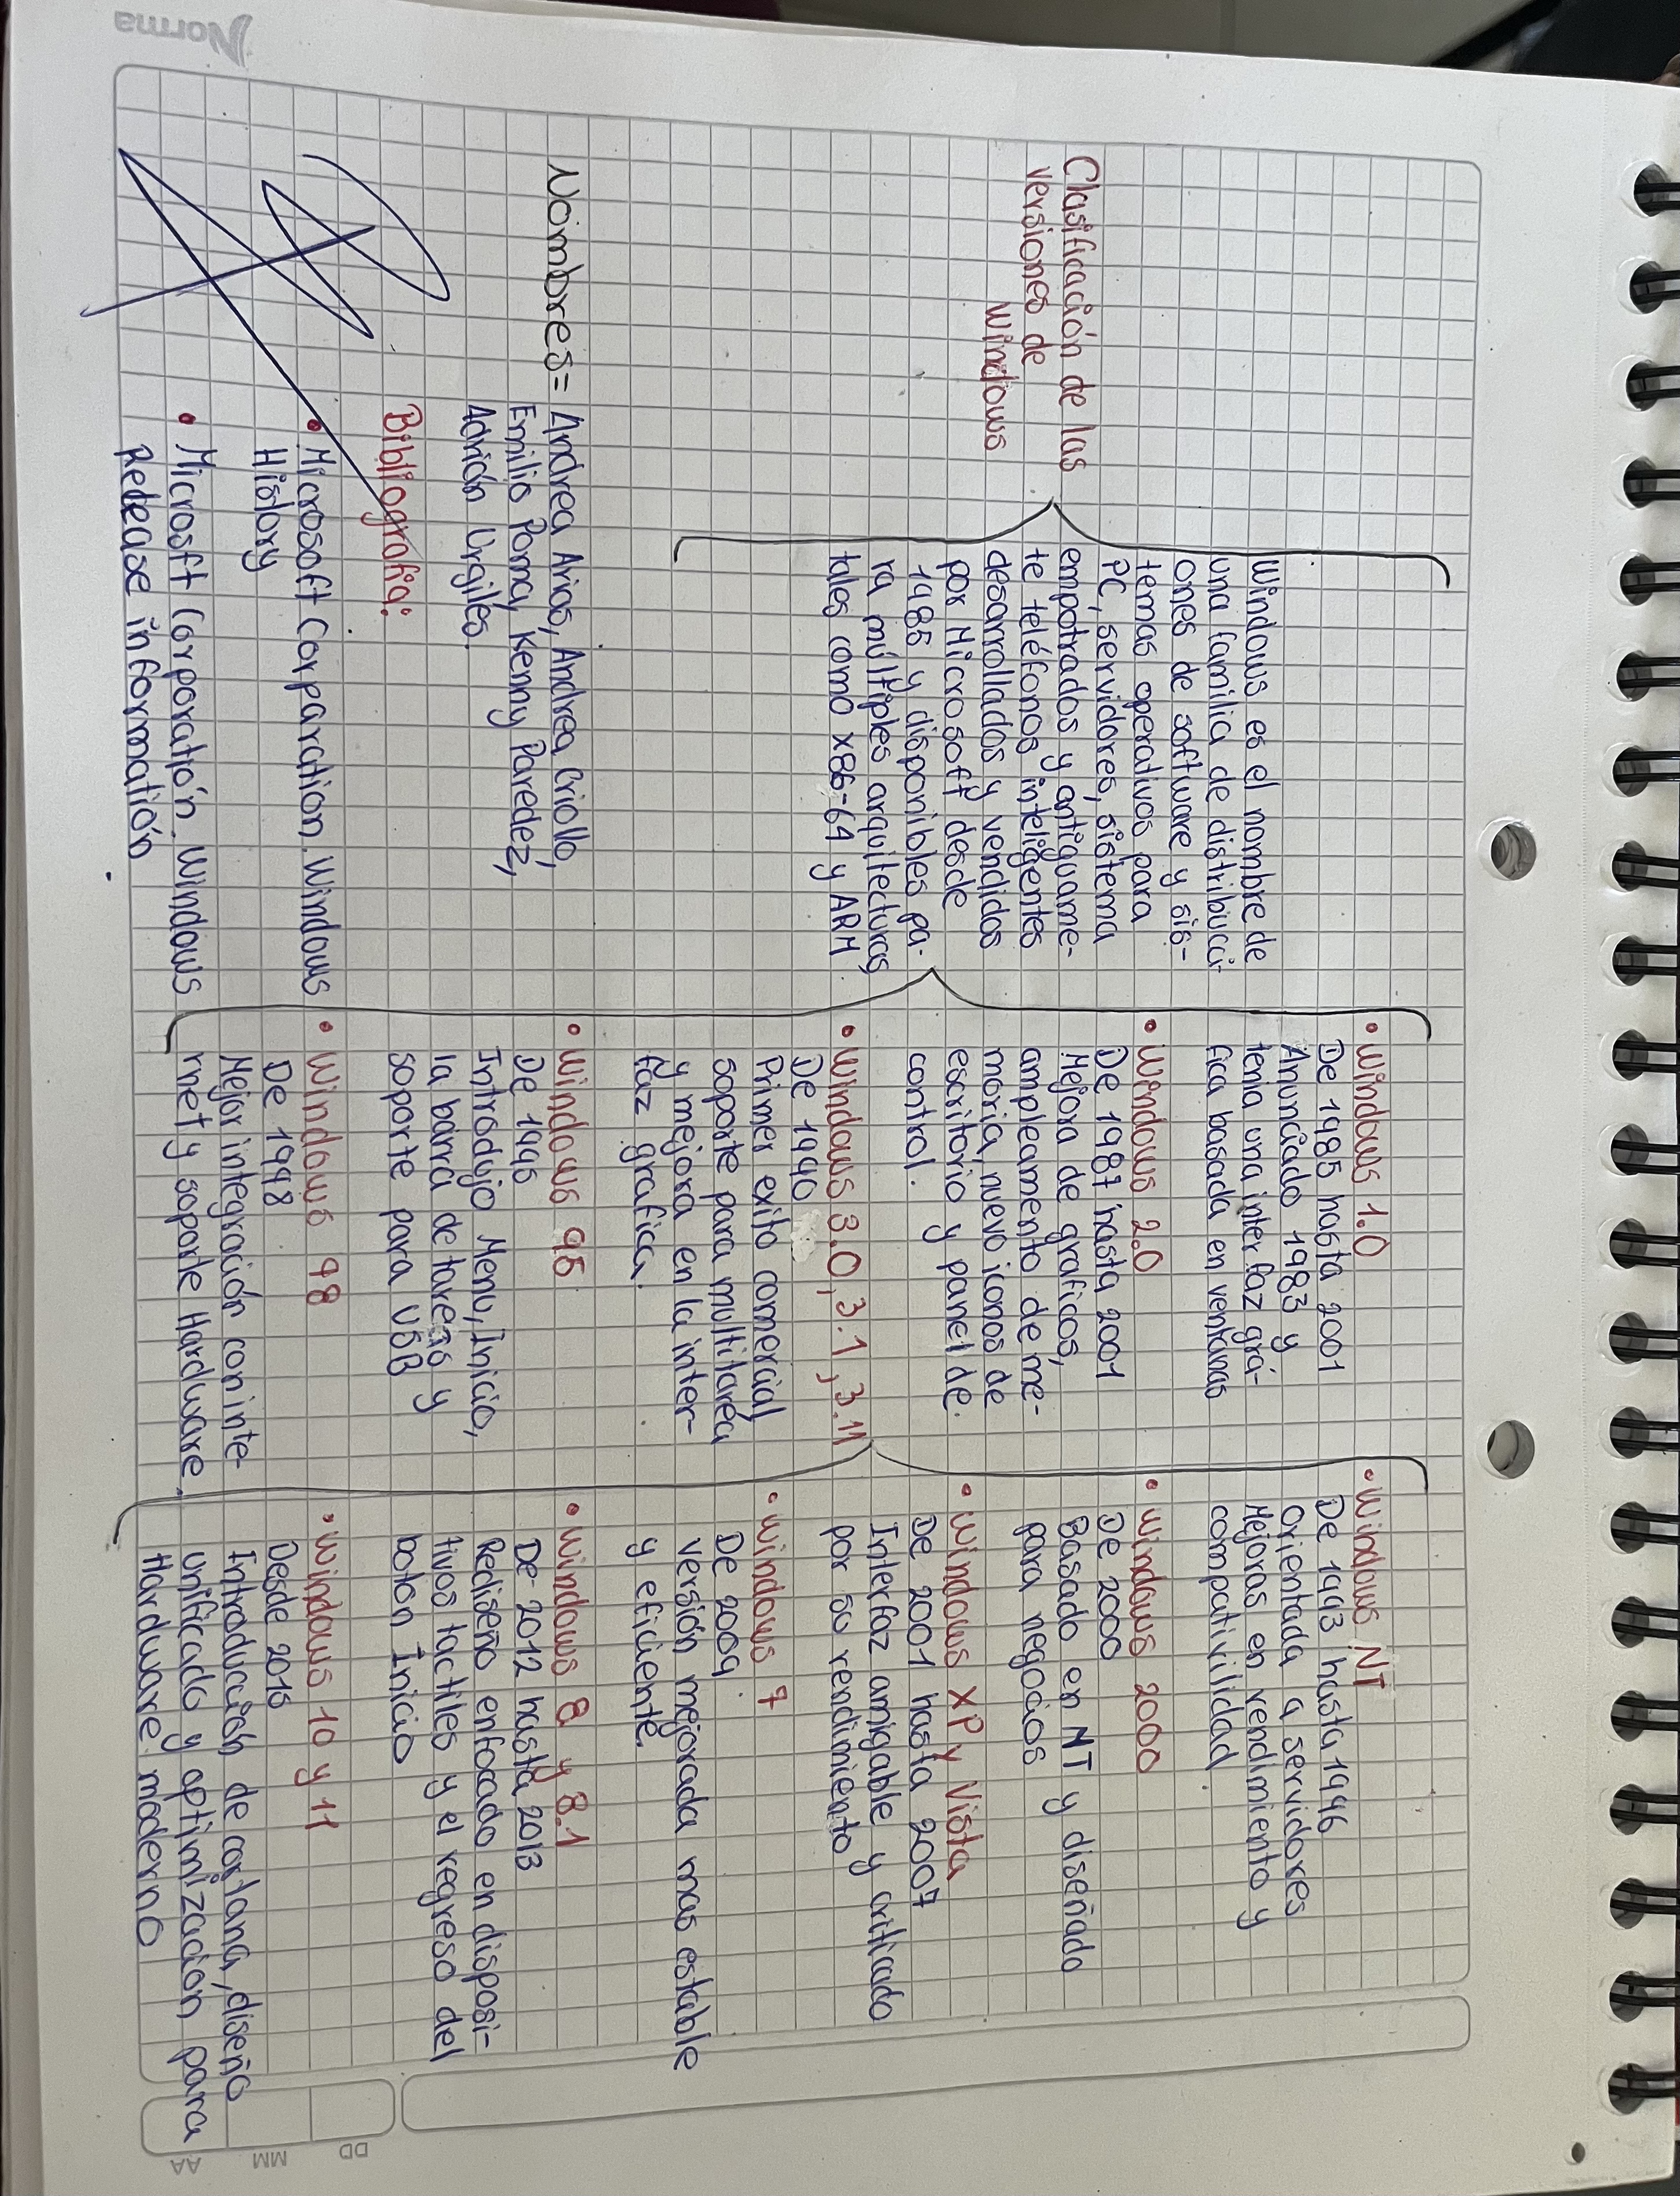 Clasificación de las
versiones de
Windows
Windows es el nombre de
una familia de distribuci-
ones de software y sis-
temas operativos para
PC, servidores, sistema
empotrados y antiguame-
te teléfonos inteligentes
desarrollados y vendidos
por Microsoft desde
1985 y disponibles pa-
ra múltiples arquitecturas
tales como x86-64 y ARM
• Windows 1.0
De 1985 hasta 2001
Anunciado 1983 y
tenia una interfaz grá-
fica basada en ventanas
• Windows 2.0
De 1987 hasta 2001
Mejora de graficos,
ampleamento de me-
moria, nuevo iconos de
escritorio y panel de
control.
• Windows 3.0, 3.1, 3.11
De 1990
Primer exito comercial,
soporte para multitarea
y mejora en la inter-
faz grafica.
• Windows 95
De 1995
Introdujo Menu, Inicio,
la barra de tareas y
soporte para USB
• Windows 98
De 1998
Mejor integración con inte-
rnet y soporte Hardware.
• Windows NT
De 1993 hasta 1996
Orientada a servidores
Mejoras en rendimiento y
compativilidad.
• Windows 2000
De 2000
Basado en NT y diseñado
para negocios
• Windows XP y Vista
De 2001 hasta 2007
Interfaz amigable y criticado
por su rendimiento
• Windows 7
De 2009
Versión mejorada mas estable
y eficiente.
• Windows 8 y 8.1
De 2012 hasta 2013
Rediseño enfocado en disposi-
tivos tactiles y el regreso del
boton Inicio
• Windows 10 y 11
Desde 2015
Introducción de cortana, diseño
unificado y optimización para
Hardware moderno
Nombres= Andrea Arias, Andrea Criollo,
Emilio Poma, Kenny Paredez,
Adrián Urgiles.
Bibliografia:
• Microsoft Corparation. Windows
History
• Microsft Corporation. Windows
Redease information
Norma
DD
MM
AA